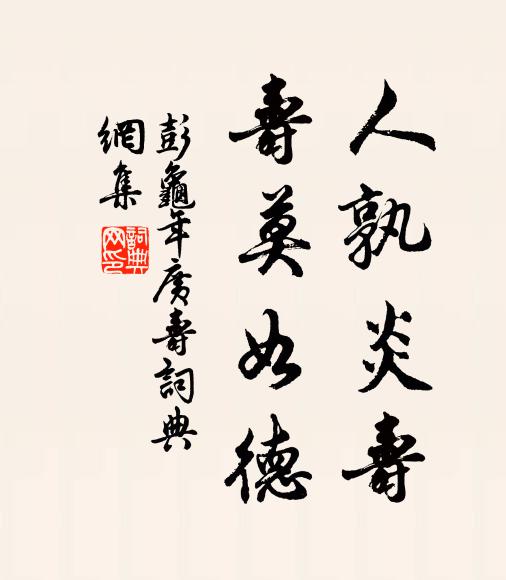 人孰炎壽
壽莫如德
彭龜年廣壽詞典
網集
詞典
网印